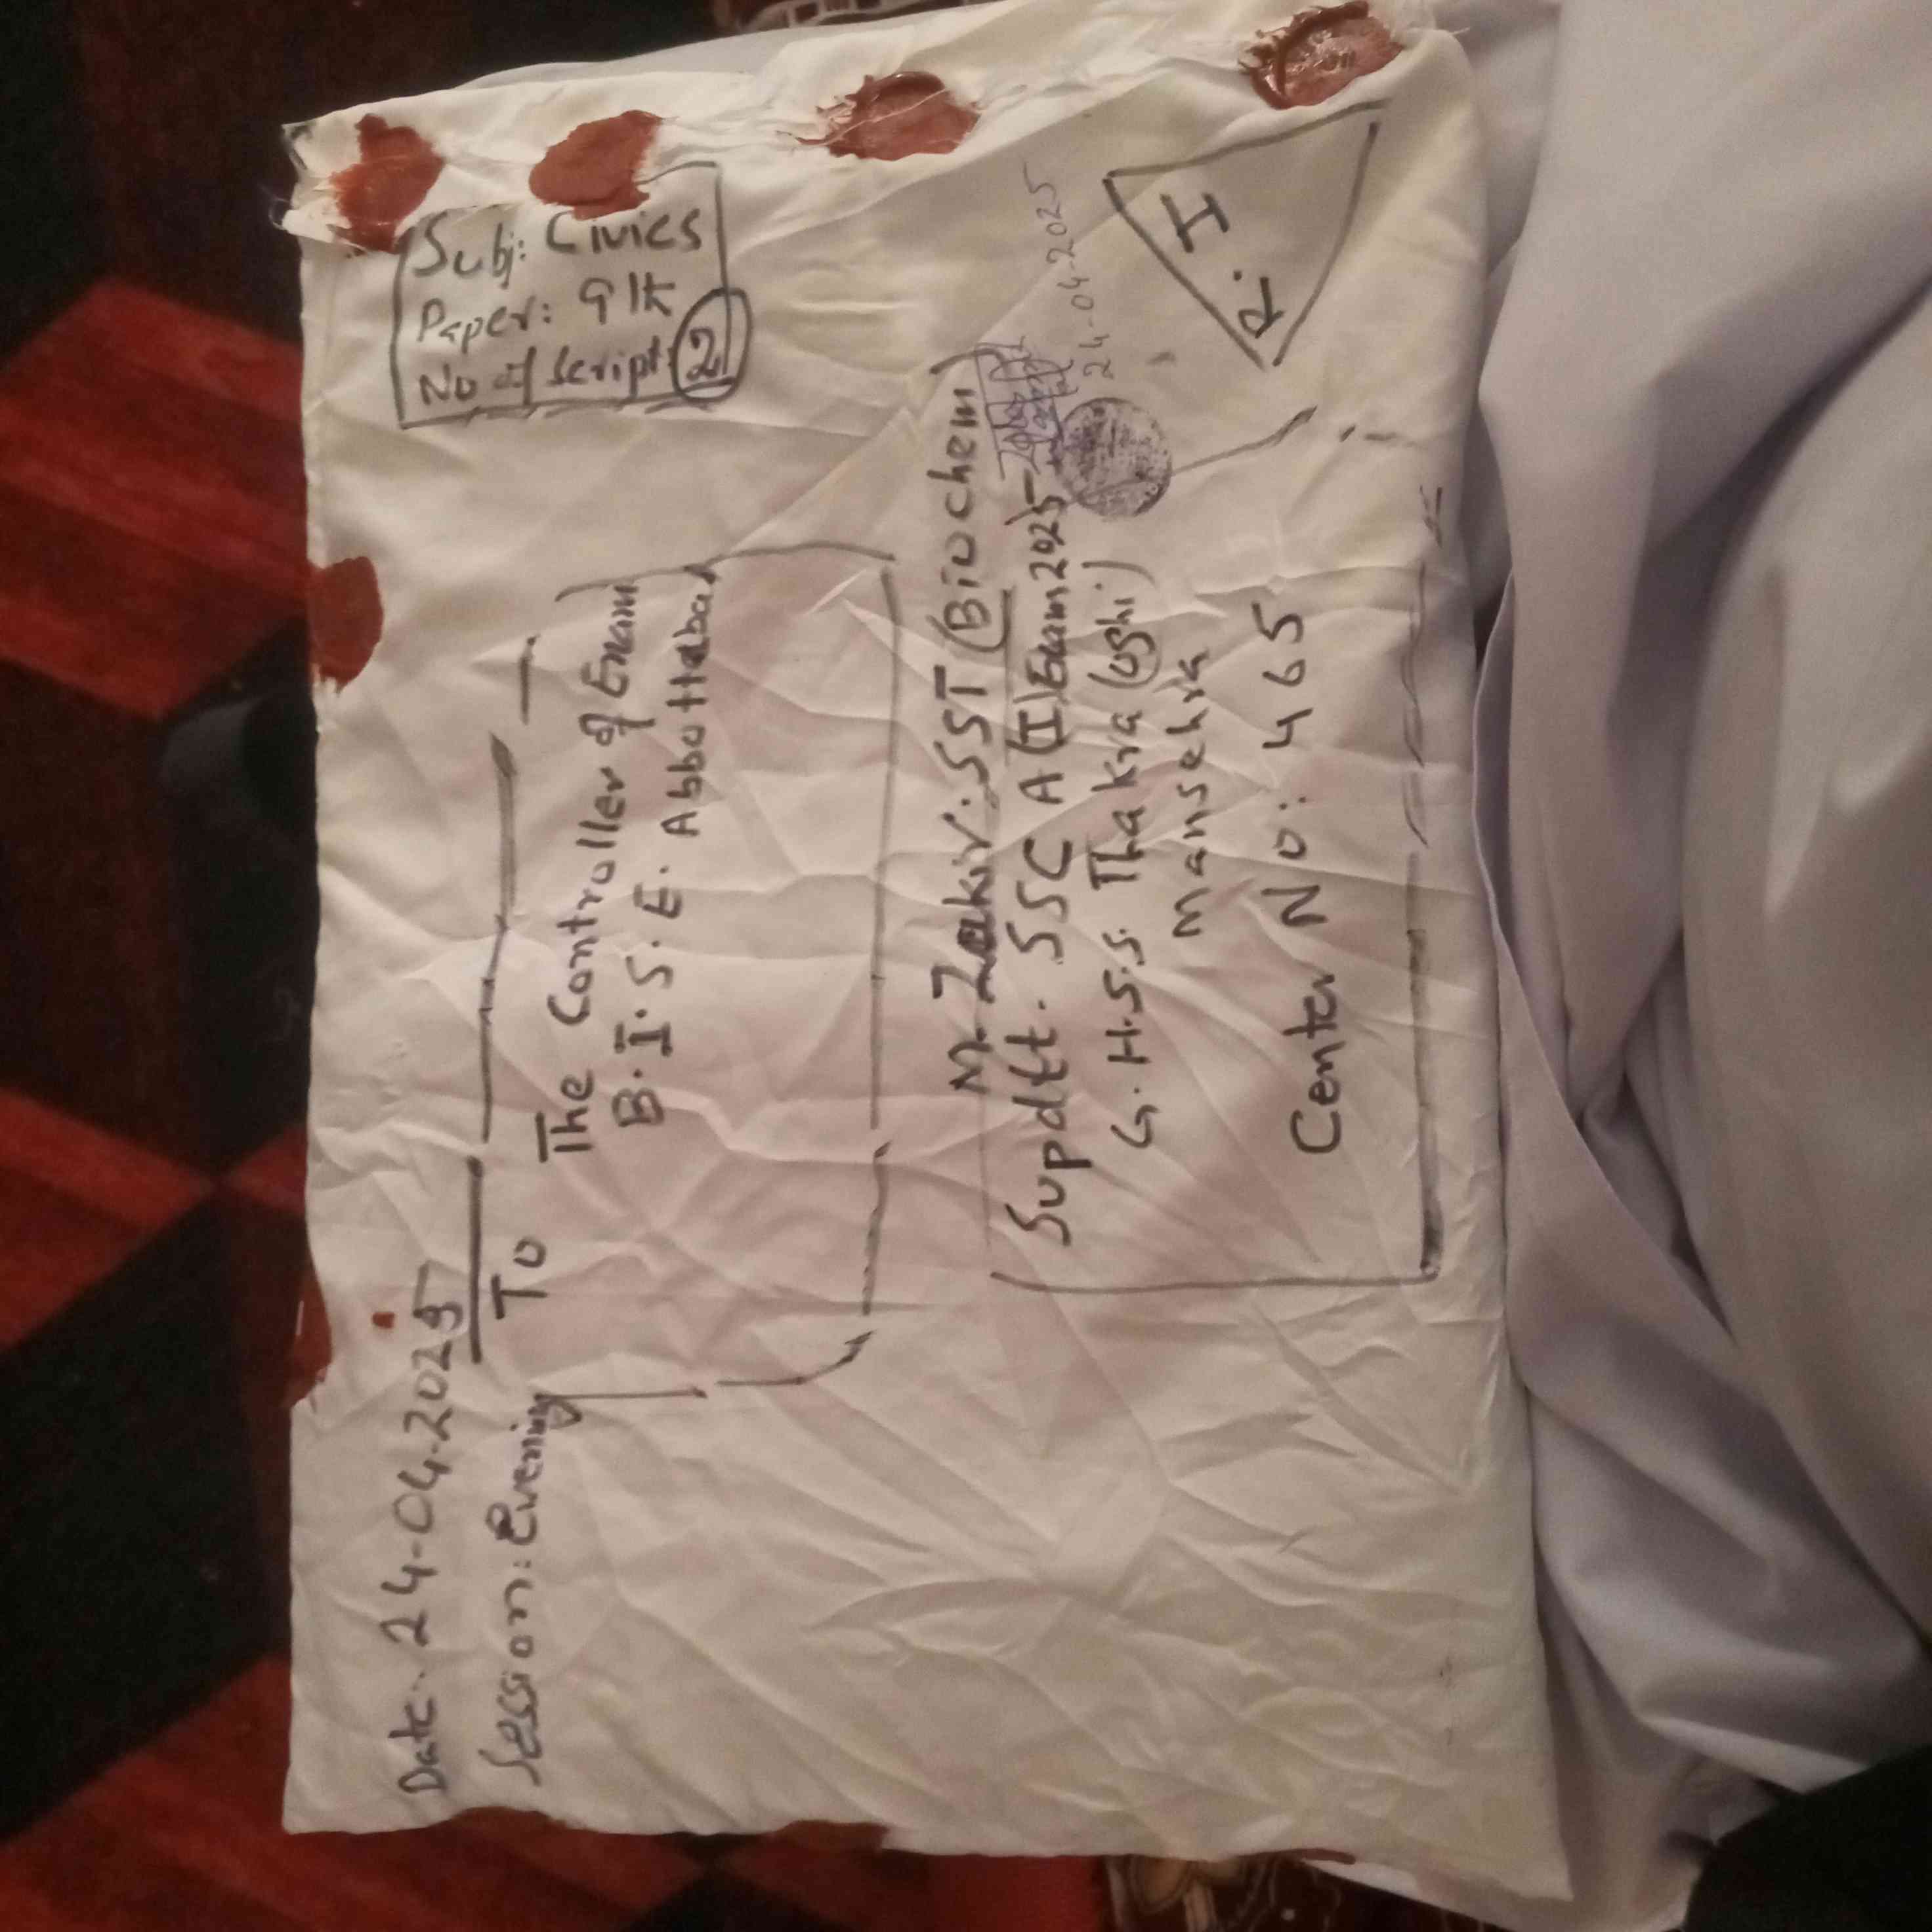 Date: 24-04-2025
Session: Evening
Subj: Civics
Paper: 9th
No of script: 2
To
The Controller of Exam
B.I.S.E. Abbottabad
M. Zakir. SST (Biochem)
Supdtt. SSC A(I) Exam 2025
G.H.S.S. Thakra (Oghi)
Mansehra
Center No: 465
24-04-2025
R.I